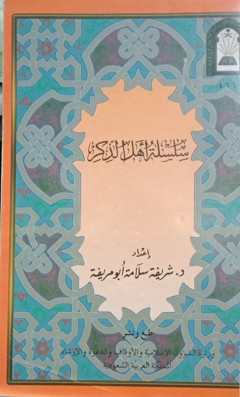 سلسلة أهل الذكر
إعداد
د. شريفة سلامة أبو مريفة
طبع ونشر
وزارة الشؤون الإسلامية والأوقاف والدعوة والإرشاد
المملكة العربية السعودية